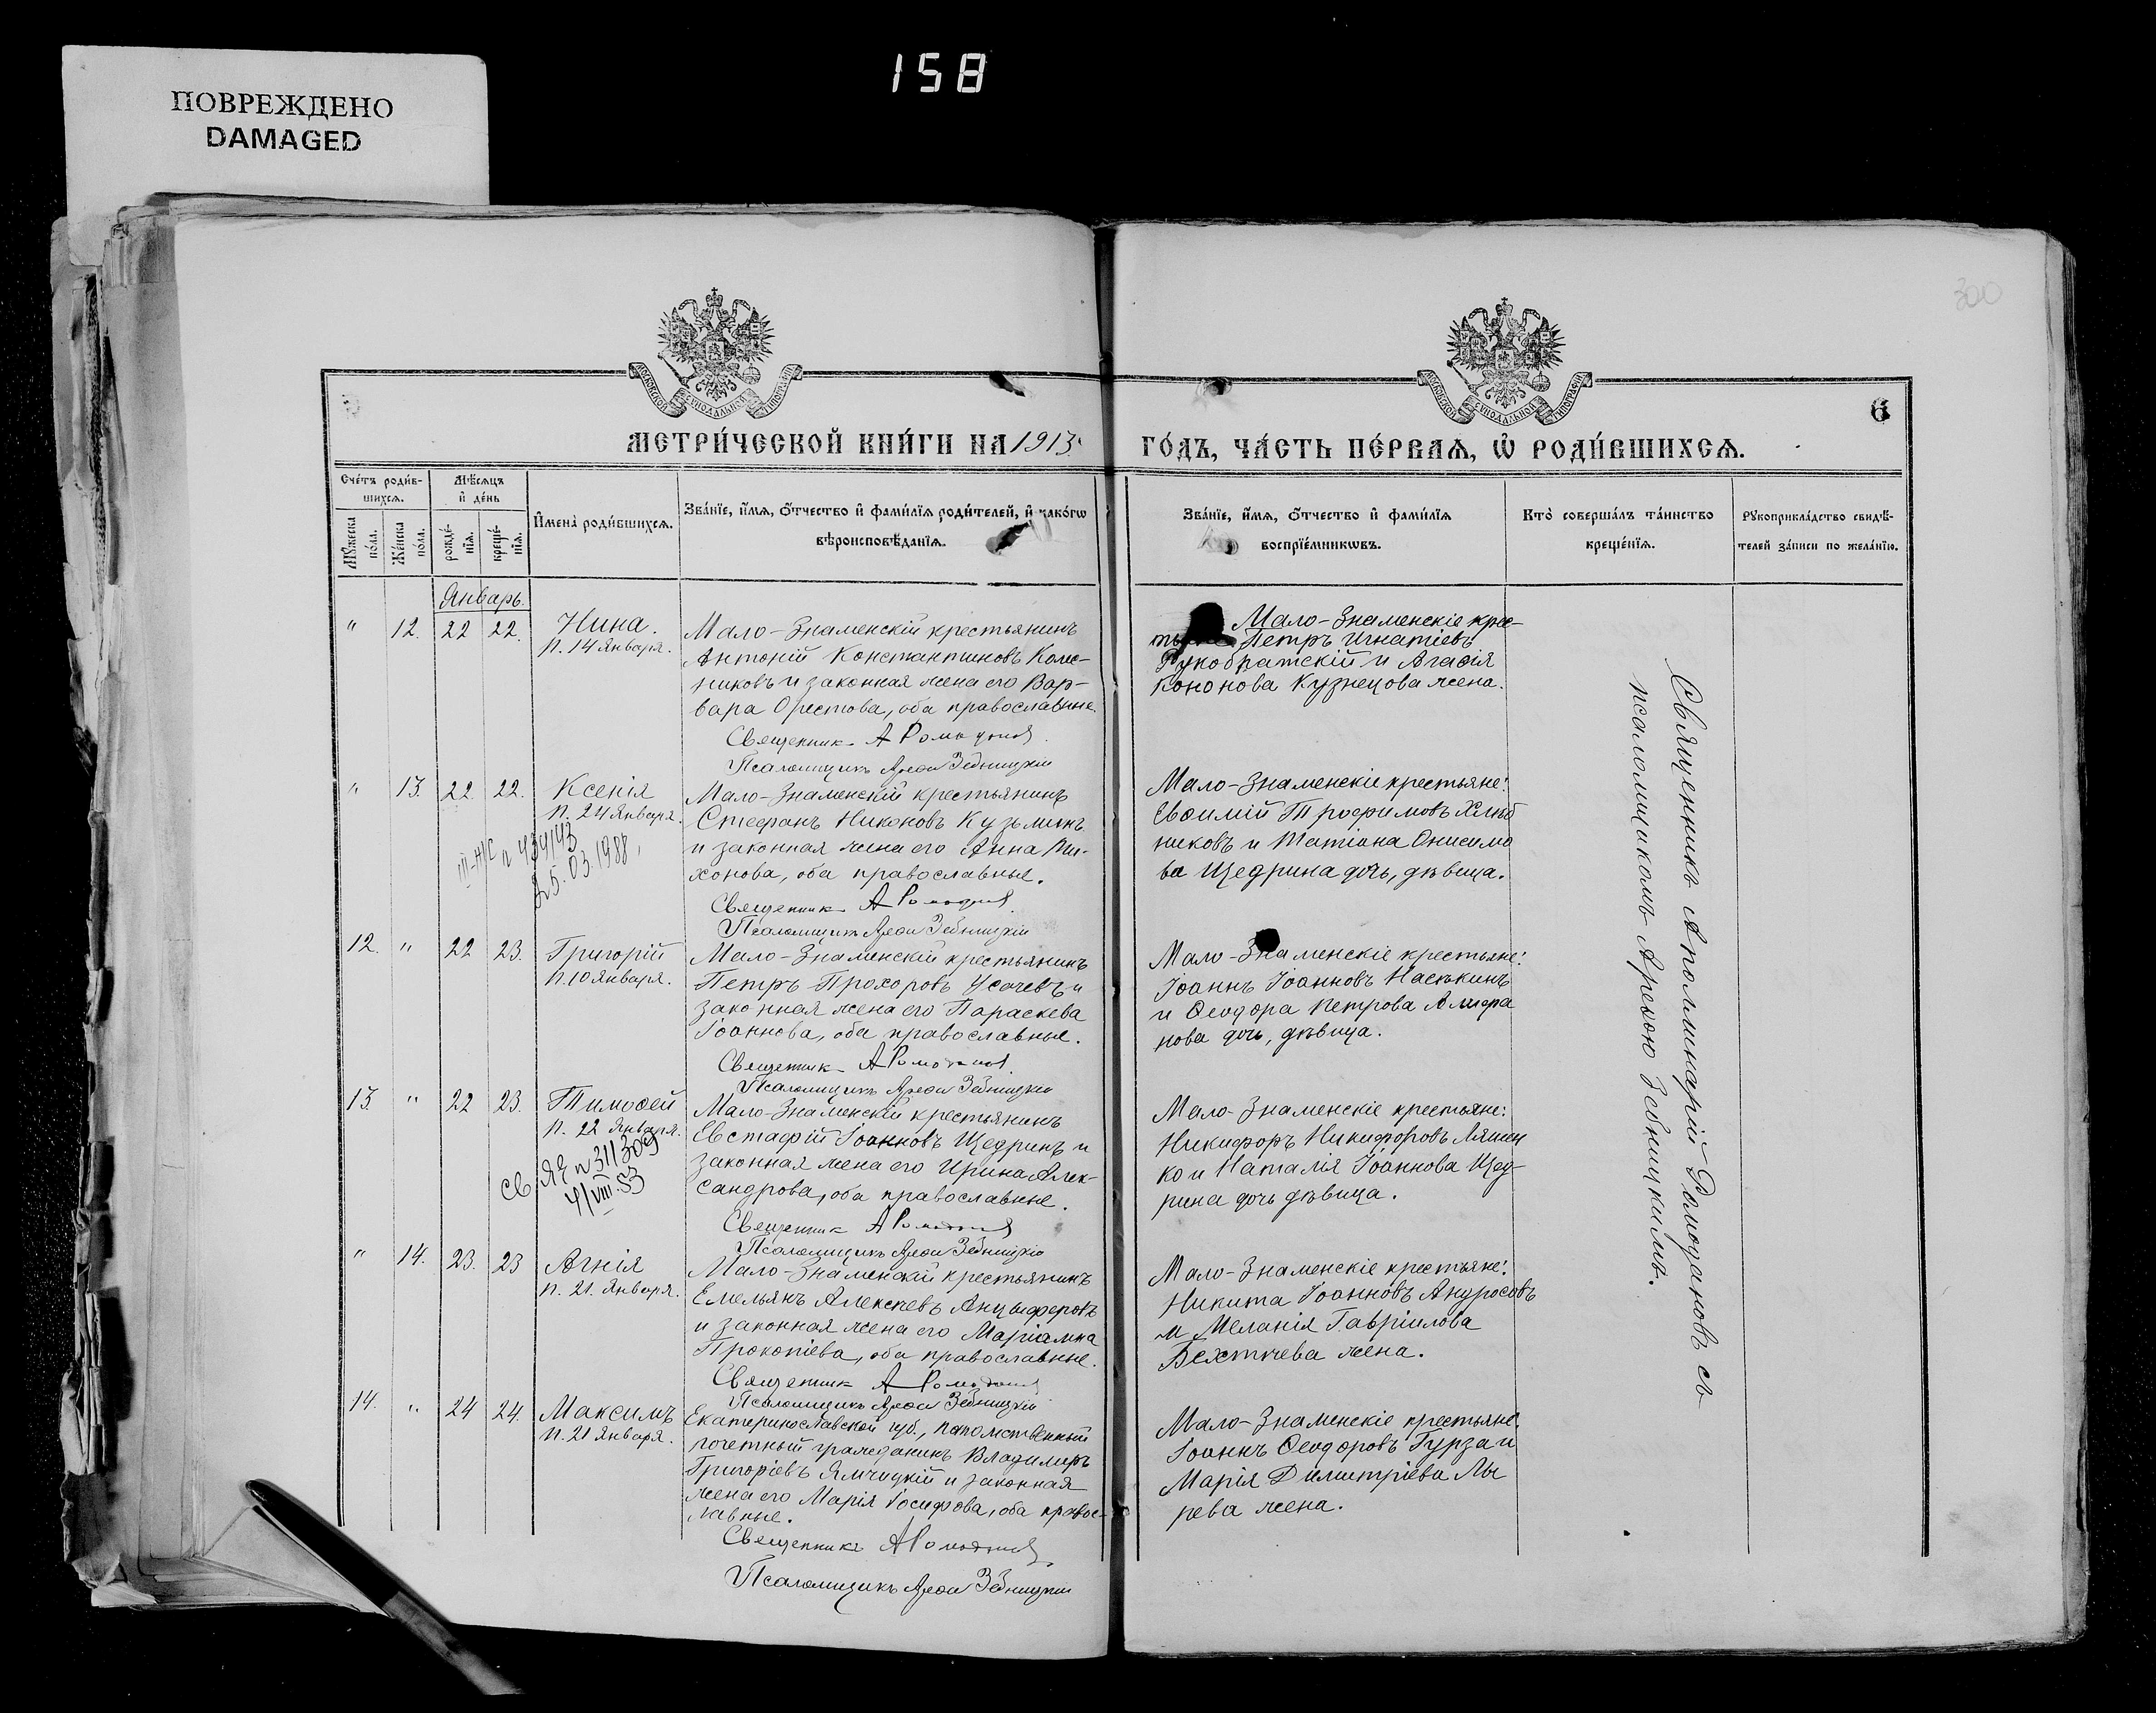 158
ПОВРЕЖДЕНО
DAMAGED
300
МОСКОВСКОЙ СѴНОДАЛЬНОЙ ТИПОГРАФІИ
МОСКОВСКОЙ СѴНОДАЛЬНОЙ ТИПОГРАФІИ
6
МЕТРИ́ЧЕСКОЙ КНИ́ГИ НА 1913.
ГО́ДЪ, ЧА́СТЬ ПЕ́РВАѦ, Ѡ҆ РОДИ́ВШИХСѦ.
Сче́тъ роди́в-
шихсѧ.
Мѣ́сѧцъ
и҆ де́нь
Мꙋ́жеска по́ла.
Же́нска по́ла.
рожде́-
нїѧ.
креще́-
нїѧ.
И҆мена̀ роди́вшихсѧ.
Зва́нїе, и҆́мѧ, ѻ҆́тчество и҆ фами́лїѧ роди́телей, и҆ како́гѡ
вѣроисповѣ́данїѧ.
Зва́нїе, и҆́мѧ, ѻ҆́тчество и҆ фами́лїѧ
воспрїе́мникѡвъ.
Кто̀ соверша́лъ та́инство
креще́нїѧ.
Рꙋкоприкла́дство свидѣ́-
телей за́писи по жела́нїю.
Январь.
" 12. 22 22. Нина.
п. 14 Января.
Мало-Знаменскій крестьянинъ
Антоній Константиновъ Колес-
никовъ и законная жена его Вар-
вара Орестова, оба православные
Священникъ А Ромоданов
Псаломщикъ Арефа Зебницкій
Мало-Знаменскіе крес-
Петръ Игнатіевъ
Рукобратскій и Агафія
Кононова Кузнецова жена.
" 13. 22 22. Ксенія
п. 24 Января.
III-АС п 434143
25.03.1988
Мало-Знаменскій крестьянинъ
Стефанъ Никоновъ Кузьминъ
и законная жена его Анна Ти-
хонова, оба православные.
Священникъ А Ромоданов
Псаломщикъ Арефа Зебницкій
Мало-Знаменскіе крестьяне:
Евѳимій Трофимовъ Хлѣб
никовъ и Татіана Онисимо
ва Щедрина дочь, дѣвица.
12. " 22 23. Григорій
п. 10 Января.
Мало-Знаменскій крестьянинъ
Петръ Прохоровъ Усачевъ и
законная жена его Параскева
Іоаннова, оба православные.
Священникъ А Ромоданов
Псаломщикъ Арефа Зебницкій
Мало-Знаменскіе крестьяне:
Іоаннъ Іоанновъ Наськинъ
и Ѳеодора Петрова Алифа
нова дочь, дѣвица.
13. " 22 23. Тимоѳей
п. 22 Января.
св ЯЯ п 311309
4/VIII.53
Мало-Знаменскій крестьянинъ
Евстафій Іоанновъ Щедринъ и
законная жена его Ирина Алек-
сандрова, оба православные.
Священникъ А Ромоданов
Псаломщикъ Арефа Зебницкій
Мало-Знаменскіе крестьяне:
Никифоръ Никифоровъ Ляшен
ко и Наталія Іоаннова Щед-
рина дочь дѣвица.
" 14. 23. 23 Агнія
п. 21. Января.
Мало-Знаменскій крестьянинъ
Емельянъ Алексѣевъ Анцыферовъ
и законная жена его Маріамна
Прокопіева, оба православные.
Священникъ А Ромоданов
Псаломщикъ Арефа Зебницкій
Мало-Знаменскіе крестьяне:
Никита Іоанновъ Андросовъ
и Меланія Гавріилова
Бехтѣева жена.
14. " 24 24. Максимъ
п. 21 Января.
Екатеринославской губ., потомственный
почетный гражданинъ Владимиръ
Григоріевъ Ямчицкій и законная
жена его Марія Іосифова, оба правос-
лавные.
Священникъ А Ромоданов
Псаломщикъ Арефа Зебницкій
Мало-Знаменскіе крестьяне.
Іоаннъ Ѳеодоровъ Гурза и
Марія Димитріева Лы
рева жена.
Священникъ Аполлинарій Ромодановъ съ
псаломщикомъ Арефою Зебницкимъ.